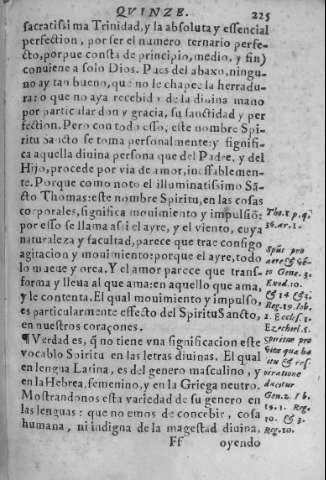 QVINZE. 225
sacratissima Trinidad, y la absoluta y essencial
perfection, por ser el numero ternario perfe-
cto, porque consta de principio, medio, y fin)
conuiene a solo Dios. Pues del abaxo, ningu-
no ay tan bueno, que no le chape la herradu-
ra: o que no aya recebido de la diuina mano
por particular don y gracia, su sanctidad y per
fection. Pero con todo esso, este nombre Spi-
ritu Sancto se toma personalmente: y significa
a aquella diuina persona que del Padre, y del
Hijo, procede por via de amor, ineffablemen-
te. Porque como noto el illuminatissimo Sā-
cto Thomas: este nombre Spiritu, en las cosas
corporales, significa mouimiento y impulsiō:
por esso se llama assi el ayre, y el viento, cuya
naturaleza y facultad, parece que trae consigo
agitacion y mouimiento: porque el ayre, todo
lo mueue y orea. Y el amor parece que trans-
forma y lleua al que ama: en aquello que ama,
y le contenta. El qual mouimiento y impulso,
es particularmente effecto del Spiritu Sancto,
en nuestros coraçones.
¶ Verdad es, q̃ no tiene vna significacion este
vocablo Spiritu en las letras diuinas. El qual
en lengua Latina, es del genero masculino, y
en la Hebrea, femenino, y en la Griega neutro.
Mostrandonos esta variedad de su genero en
las lenguas: que no emos de concebir, cosa
humana, ni indigna de la magestad diuina,
Ff oyendo
Tho. 1. p. q.
36. ar. 1.
Spūs pro
aere
Gene. 3.
Exod. 10.
& 14 & 2.
Reg. 19. Iob.
1. Eccles. 1.
Ezechiel. 5.
spiritus pro
vita qua ha
litu & res-
piratione
ducitur
Gen. 2. Ib.
19. 1. Reg.
30. & 3.
Reg. 10.